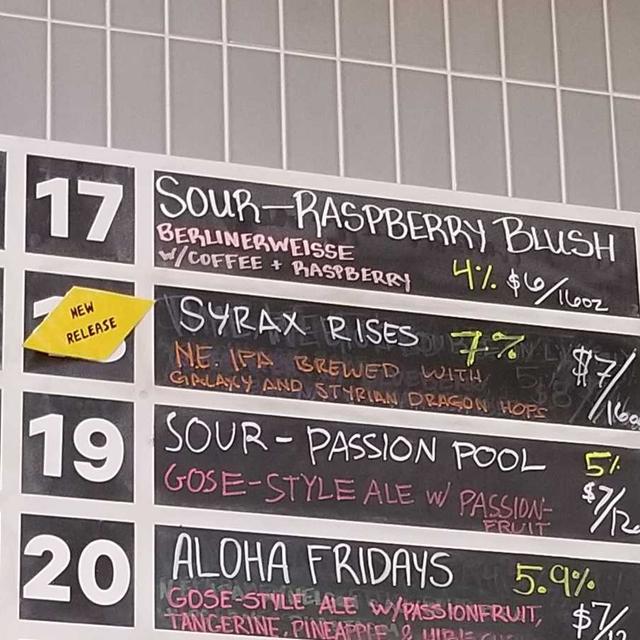 17
SOUR-RASPBERRY BLUSH
BERLINERWEISSE
W/COFFEE + RASPBERRY 4% $6/16oz
NEW
RELEASE
SYRAX RISES 7% $7/16oz
N.E. IPA BREWED WITH
GALAXY AND STYRIAN DRAGON HOPS
19
SOUR-PASSION POOL 5%
GOSE-STYLE ALE W/ PASSION-
FRUIT $7/12
20
ALOHA FRIDAYS 5.9%
GOSE-STYLE ALE W/PASSIONFRUIT, $7/
TANGERINE, PINEAPPLE &